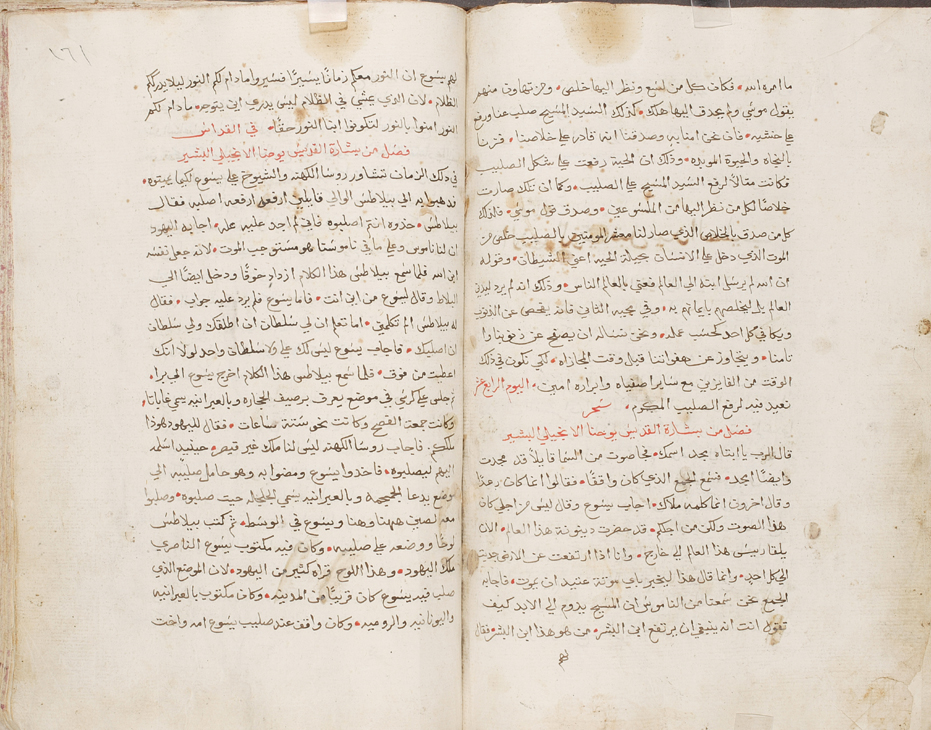 ما امره الله • فكان كل من لسع ونظر اليها خلص • ومن تهاون منهم
بقول موسي ولم يحدق اليها هلك • كذلك السيد المسيح صلب عنا ورفع
علي خشبه • فان نحن امنا به وصدقنا انه قادر علي خلاصنا • فزنا
بالنجاه والحيوة الموبده • وذلك ان الحية رفعت علي شكل الصليب
فكانت مثالاً لرفع السيد المسيح علي الصليب • وكما ان تلك صارت
خلاصًا لكل من نظر اليها من الملسوعين • وصدق قول موسي • فكذلك
كل من صدق بالخلاص الذي صار لنا معشر المومنين بالصليب خلص من
الموت الذي دخل علي الانسان بحيلة الحيه اعني الشيطان • وقوله
ان الله لم يرسل ابنه الي العالم فعني بالعالم الناس • وذلك انه لم يرد ليدين
العالم بل ليخلصهم بايمانهم به • وفي مجيه الثاني فانه يفحص عن الذنوب
ويكافي كل احد كحسب عمله • ونحن نساله ان يصفح عن ذنوبنا و
تامنا • ويتجاوز عن هفواتنا قبل وقت المجازاه • لكي نكون في ذلك
الوقت من الفايزين مع ساير اصفياه وابراره امين • اليوم الرابع عشر
نعيد فيه لرفع الصليب المكرم • سحر
فصل من بشارة القديس يوحنا الانجيلي البشير
قال الرب يا ابتاه مجد اسمك • فجا صوت من السما قايلاً قد مجدت
وايضًا امجد • فسمع الجمع الذي كان واقفًا • فقالوا انما كان رعدًا
وقال اخرون انما كلمه ملاك • اجاب يسوع وقال ليس من اجلي كان
هذا الصوت ولكن من اجلكم • قد حضرت دينونة هذا العالم • الان
يلقا رييس هذا العالم الي خارج • وانا اذا ارتفعت عن الارض جذبت
الي كل احد • وانما قال هذا ليخبر باي موتة عتيد ان يموت • فاجابه
الجمع نحن سمعنا من الناموس ان المسيح يدوم الي الابد كيف
تقول انت انه ينبغي ان يرتفع ابن البشر • من هو هذا ابن البشر • فقال
لهم
١٦١
لهم يسوع ان النور معكم زمانًا يسيرًا فسيروا مادام لكم النور ليلا يدرككم
الظلام • لان الذي يمشي في الظلام ليس يدري اين يتوجه • مادام لكم
النور امنوا بالنور لتكونوا ابنا النور حقًا • في القداس
فصل من بشارة القديس يوحنا الانجيلي البشير
في ذلك الزمان تشاور روسا الكهنه والشيوخ علي يسوع لكيما يميتوه •
فذهبوا به الي بيلاطس الوالي قايلين ارفعه ارفعه اصلبه فقال
بيلاطس • خذوه انتم اصلبوه فاني لم اجد عليه عله • اجابه اليهود
ان لنا ناموس وعلي ما في ناموسنا هو مستوجب الموت • لانه جعل نفسه
ابن الله فلما سمع بيلاطس هذا الكلام ازداد خوفًا ودخل ايضًا الي
البلاط وقال ليسوع من اين انت • فاما يسوع فلم يرد عليه جواب • فقال
له بيلاطس الم تكلمني • اما تعلم ان لي سلطان ان اطلقك ولي سلطان
ان اصلبك • فاجاب يسوع ليس لك علي ولا سلطان واحد لولا انك
اعطيت من فوق • فلما سمع بيلاطس هذا الكلام اخرج يسوع الي برا •
وجلس علي كرسي في موضع يعرف برصيف الحجاره وبالعبرانيه يسمي غاباثا •
وكانت جمعت الفصح وكانت نحو ستة ساعات • فقال لليهود هوذا
ملككم • فاجاب روسا الكهنه ليس لنا ملك غير قيصر • حينيد اسلمه
اليهم ليصلبوه • فاخدوا يسوع ومضوا به وهو حامل صليبه الي
موضع يدعا الجمجمه وبالعبرانيه يسمي الجلجله حيث صلبوه • وصلبوا
معه لصين ههنا وهنا ويسوع في الوسط • ثم كتب بيلاطس
لوحًا ووضعه علي صليبه • وكان فيه مكتوب يسوع الناصري
ملك اليهود • وهذا اللوح قراه كثير من اليهود • لان الموضع الذي
صلب فيه يسوع كان قريبًا من المدينه • وكان مكتوب بالعبرانيه
واليونانيه والروميه • وكان واقف عند صليب يسوع امه واخت